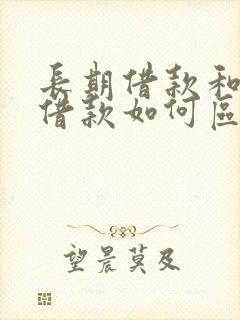 長期借款和
借款如何區
望晨莫及